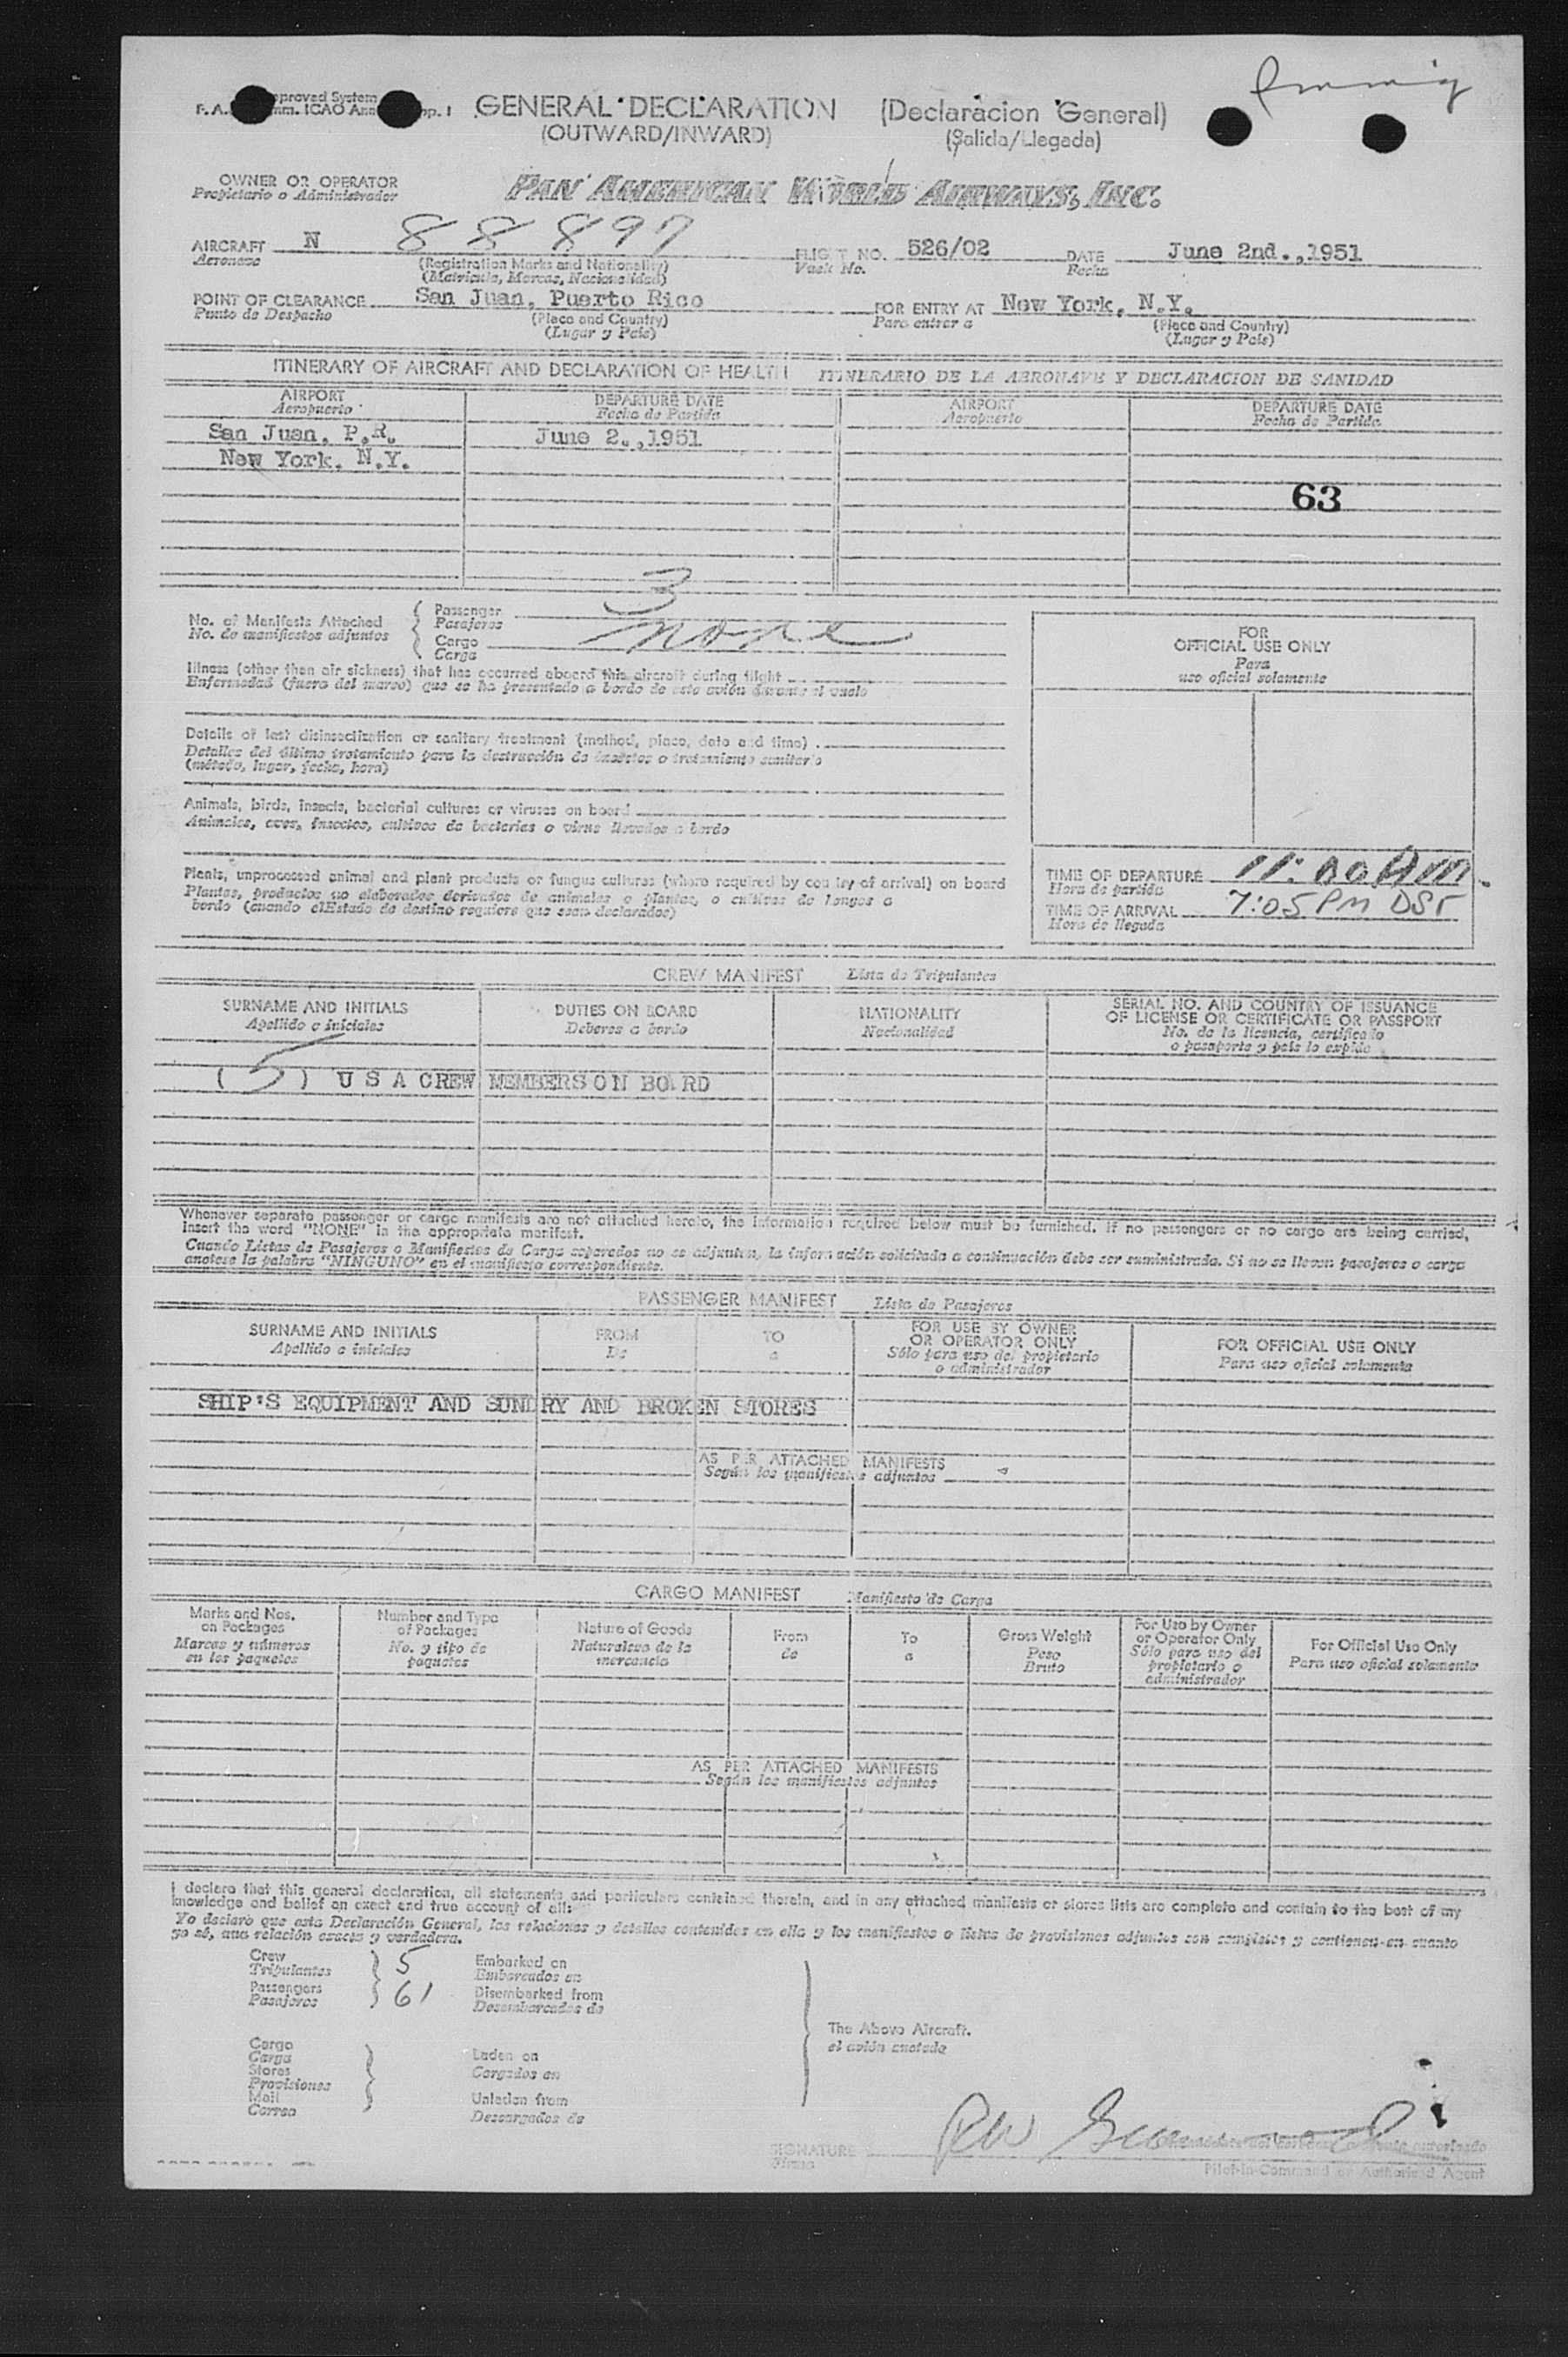 Approved System
F.A. Comm. ICAO Ann pp. 1
GENERAL DECLARATION (Declaracion General)
(OUTWARD/INWARD) (Salida/Llegada)
OWNER OR OPERATOR
Propietario o Administrador
PAN AMERICAN WORLD AIRWAYS, INC.
AIRCRAFT N 88897 FLIGHT NO. 526/02 DATE June 2nd.,1951
Aeronave (Registration Marks and Nationality) Vuelo No. Fecha
(Matricula, Marcas, Nacionalidad)
POINT OF CLEARANCE San Juan, Puerto Rico FOR ENTRY AT New York, N.Y.
Punto de Despacho (Place and Country) Para entrar a (Place and Country)
(Lugar y País) (Lugar y País)
ITINERARY OF AIRCRAFT AND DECLARATION OF HEALTH ITINERARIO DE LA AERONAVE Y DECLARACION DE SANIDAD
AIRPORT DEPARTURE DATE AIRPORT DEPARTURE DATE
Aeropuerto Fecha de Partida Aeropuerto Fecha de Partida
San Juan, P.R. June 2.,1951
New York, N.Y.
63
No. of Manifests Attached
No. de manifiestos adjuntos
Passenger 3
Pasajeros
Cargo none
Carga
FOR
OFFICIAL USE ONLY
Para
uso oficial solamente
Illness (other than air sickness) that has occurred aboard this aircraft during flight
Enfermedad (fuera del mareo) que se ha presentado a bordo de este avión durante el vuelo
Details of last disinsectization or sanitary treatment (method, place, date and time)
Detalles del último tratamiento para la destrucción de insectos o tratamiento sanitario
(método, lugar, fecha, hora)
Animals, birds, insects, bacterial cultures or viruses on board
Animales, aves, insectos, cultivos de bacterias o virus llevados a bordo
Plants, unprocessed animal and plant products or fungus cultures (where required by country of arrival) on board
Plantas, productos no elaborados derivados de animales o plantas, o cultivos de hongos a
bordo (cuando elEstado de destino requiere que sean declarados)
TIME OF DEPARTURE 11:00 AM.
Hora de partida
TIME OF ARRIVAL 7:05 PM DST
Hora de llegada
CREW MANIFEST Lista de Tripulantes
SURNAME AND INITIALS DUTIES ON BOARD NATIONALITY SERIAL NO. AND COUNTRY OF ISSUANCE
OF LICENSE OR CERTIFICATE OR PASSPORT
Apellido o iniciales Deberes a bordo Nacionalidad No. de la licencia, certificado
o pasaporte y país lo expide
(5) U S A CREW MEMBERS ON BOARD
Whenever separate passenger or cargo manifests are not attached hereto, the information required below must be furnished. If no passengers or no cargo are being carried,
insert the word "NONE" in the appropriate manifest.
Cuando Listas de Pasajeros o Manifiestos de Carga separados no se adjunten, la información solicitada a continuación debe ser suministrada. Si no se llevan pasajeros o carga
anotese la palabra "NINGUNO" en el manifiesto correspondiente.
PASSENGER MANIFEST Lista de Pasajeros
SURNAME AND INITIALS FROM TO FOR USE BY OWNER
OR OPERATOR ONLY FOR OFFICIAL USE ONLY
Apellido e iniciales De a Sólo para uso del propietario
o administrador Para uso oficial solamente
SHIP'S EQUIPMENT AND SUNDRY AND BROKEN STORES
AS PER ATTACHED MANIFESTS
Según los manifiestos adjuntos
CARGO MANIFEST Manifiesto de Carga
Marks and Nos.
on Packages
Marcas y números
en los paquetes
Number and Type
of Packages
No. y tipo de
paquetes
Nature of Goods
Naturaleza de la
mercancía
From
de
To
a
Gross Weight
Peso
Bruto
For Use by Owner
or Operator Only
Sólo para uso del
propietario o
administrador
For Official Use Only
Para uso oficial solamente
AS PER ATTACHED MANIFESTS
Según los manifiestos adjuntos
I declare that this general declaration, all statements and particulars contained therein, and in any attached manifests or stores lists are complete and contain to the best of my
knowledge and belief an exact and true account of all:
Yo declaro que esta Declaración General, las relaciones y detalles contenidos en ella y los manifiestos o listas de provisiones adjuntos son completos y contienen en cuanto
yo sé, una relación exacta y verdadera.
Crew 5 Embarked on
Tripulantes Embarcados en
Passengers 61 Disembarked from
Pasajeros Desembarcados de
The Above Aircraft.
el avión anotado
Cargo
Carga
Stores
Provisiones
Mail
Correo
Laden on
Cargados en
Unladen from
Descargados de
SIGNATURE
Firma
Pilot-in-Command or Authorized Agent